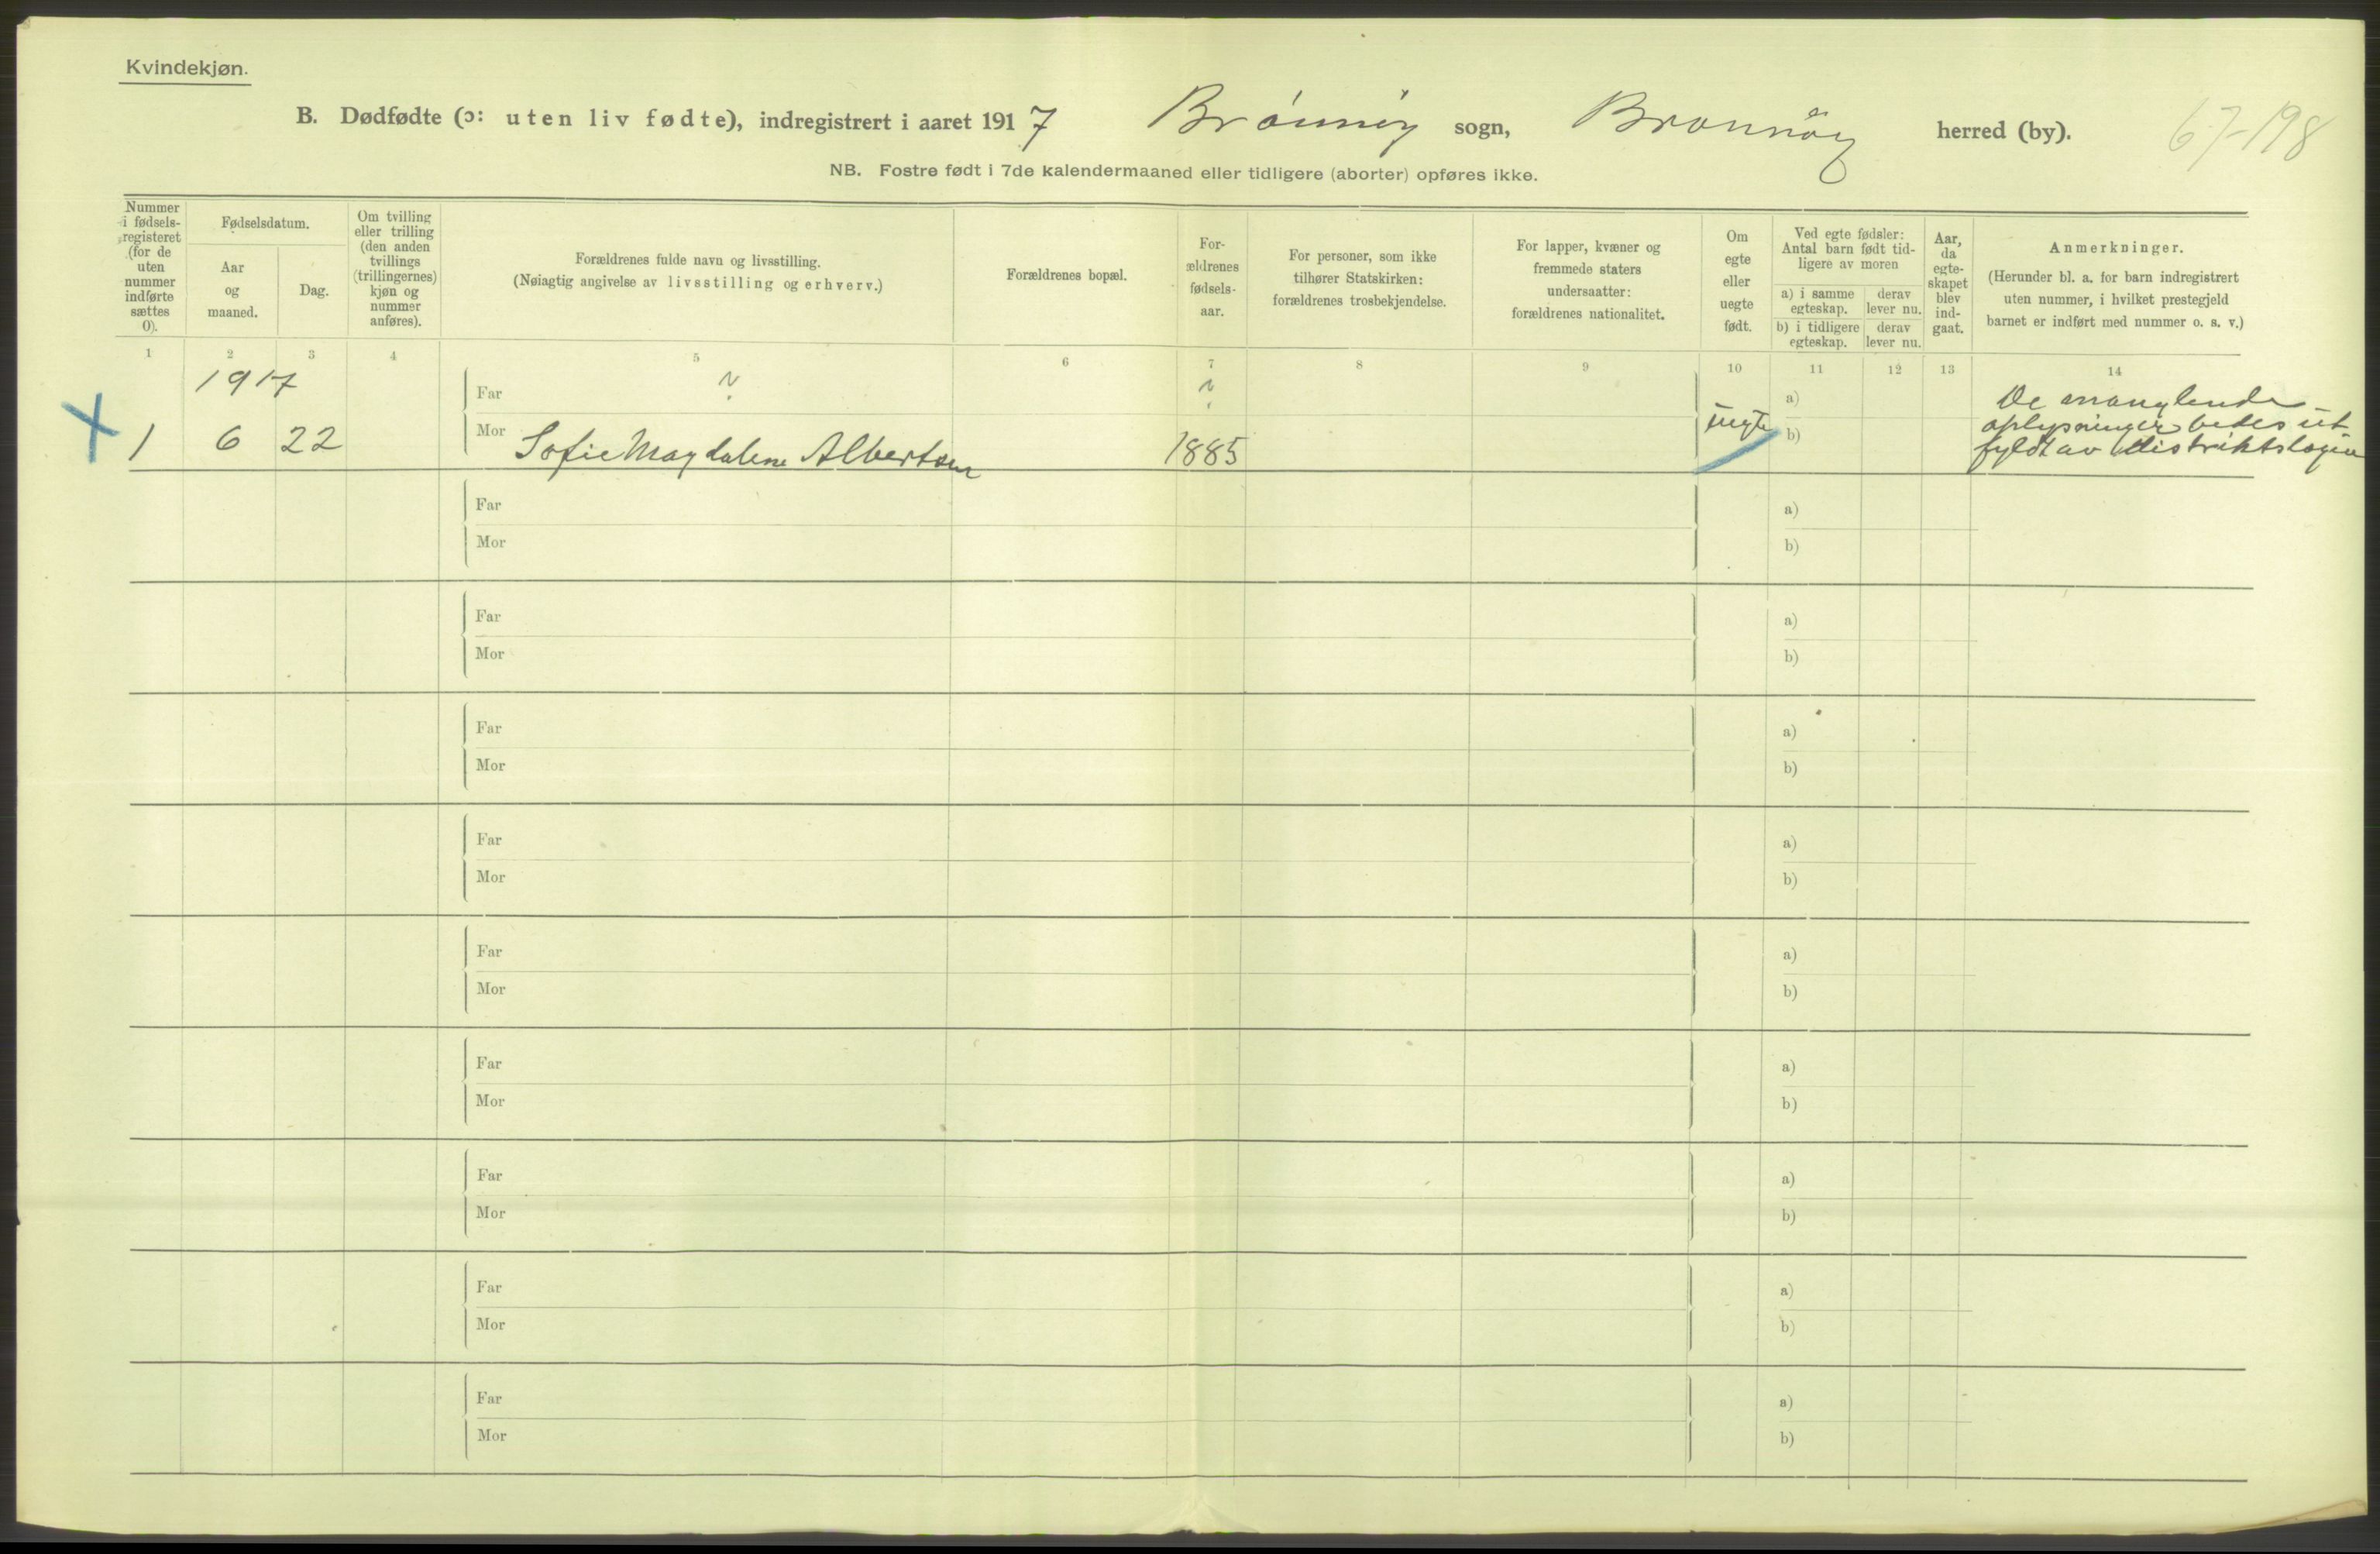 Kvindekjøn.
B. Dødfødte (ɔ: uten liv fødte), indregistrert i aaret 1917 Brønnøy sogn, Brønnøy herred (by). 67-198
NB. Fostre født i 7de kalendermaaned eller tidligere (aborter) opføres ikke.
Nummer i fødsels-
registeret
(for de
uten
nummer
indførte
sættes
0).
Fødselsdatum.
Aar
og
maaned.
Dag.
Om tvilling
eller trilling
(den anden
tvillings
(trillingernes)
kjøn og
nummer
anføres).
Forældrenes fulde navn og livsstilling.
(Nøiagtig angivelse av livsstilling og erhverv.)
Forældrenes bopæl.
For-
ældrenes
fødsels-
aar.
For personer, som ikke
tilhører Statskirken:
forældrenes trosbekjendelse.
For lapper, kvæner og
fremmede staters
undersaatter:
forældrenes nationalitet.
Om
egte
eller
uegte
født.
Ved egte fødsler:
Antal barn født tid-
ligere av moren
a) i samme
egteskap.
derav
lever nu.
b) i tidligere
egteskap.
derav
lever nu.
Aar,
da
egte-
skapet
blev
ind-
gaat.
Anmerkninger.
(Herunder bl. a. for barn indregistrert
uten nummer, i hvilket prestegjeld
barnet er indført med nummer o. s. v.)
1 2 3 4 5 6 7 8 9 10 11 12 13 14
1917
Far ? ? a) De manglende
1 6 22 Mor Sofie Magdalene Albertsen 1885 uegte b) oplysninger bedes ut
fyldt av distriktslægen
Far a)
Mor b)
Far a)
Mor b)
Far a)
Mor b)
Far a)
Mor b)
Far a)
Mor b)
Far a)
Mor b)
Far a)
Mor b)
Far a)
Mor b)
Far a)
Mor b)